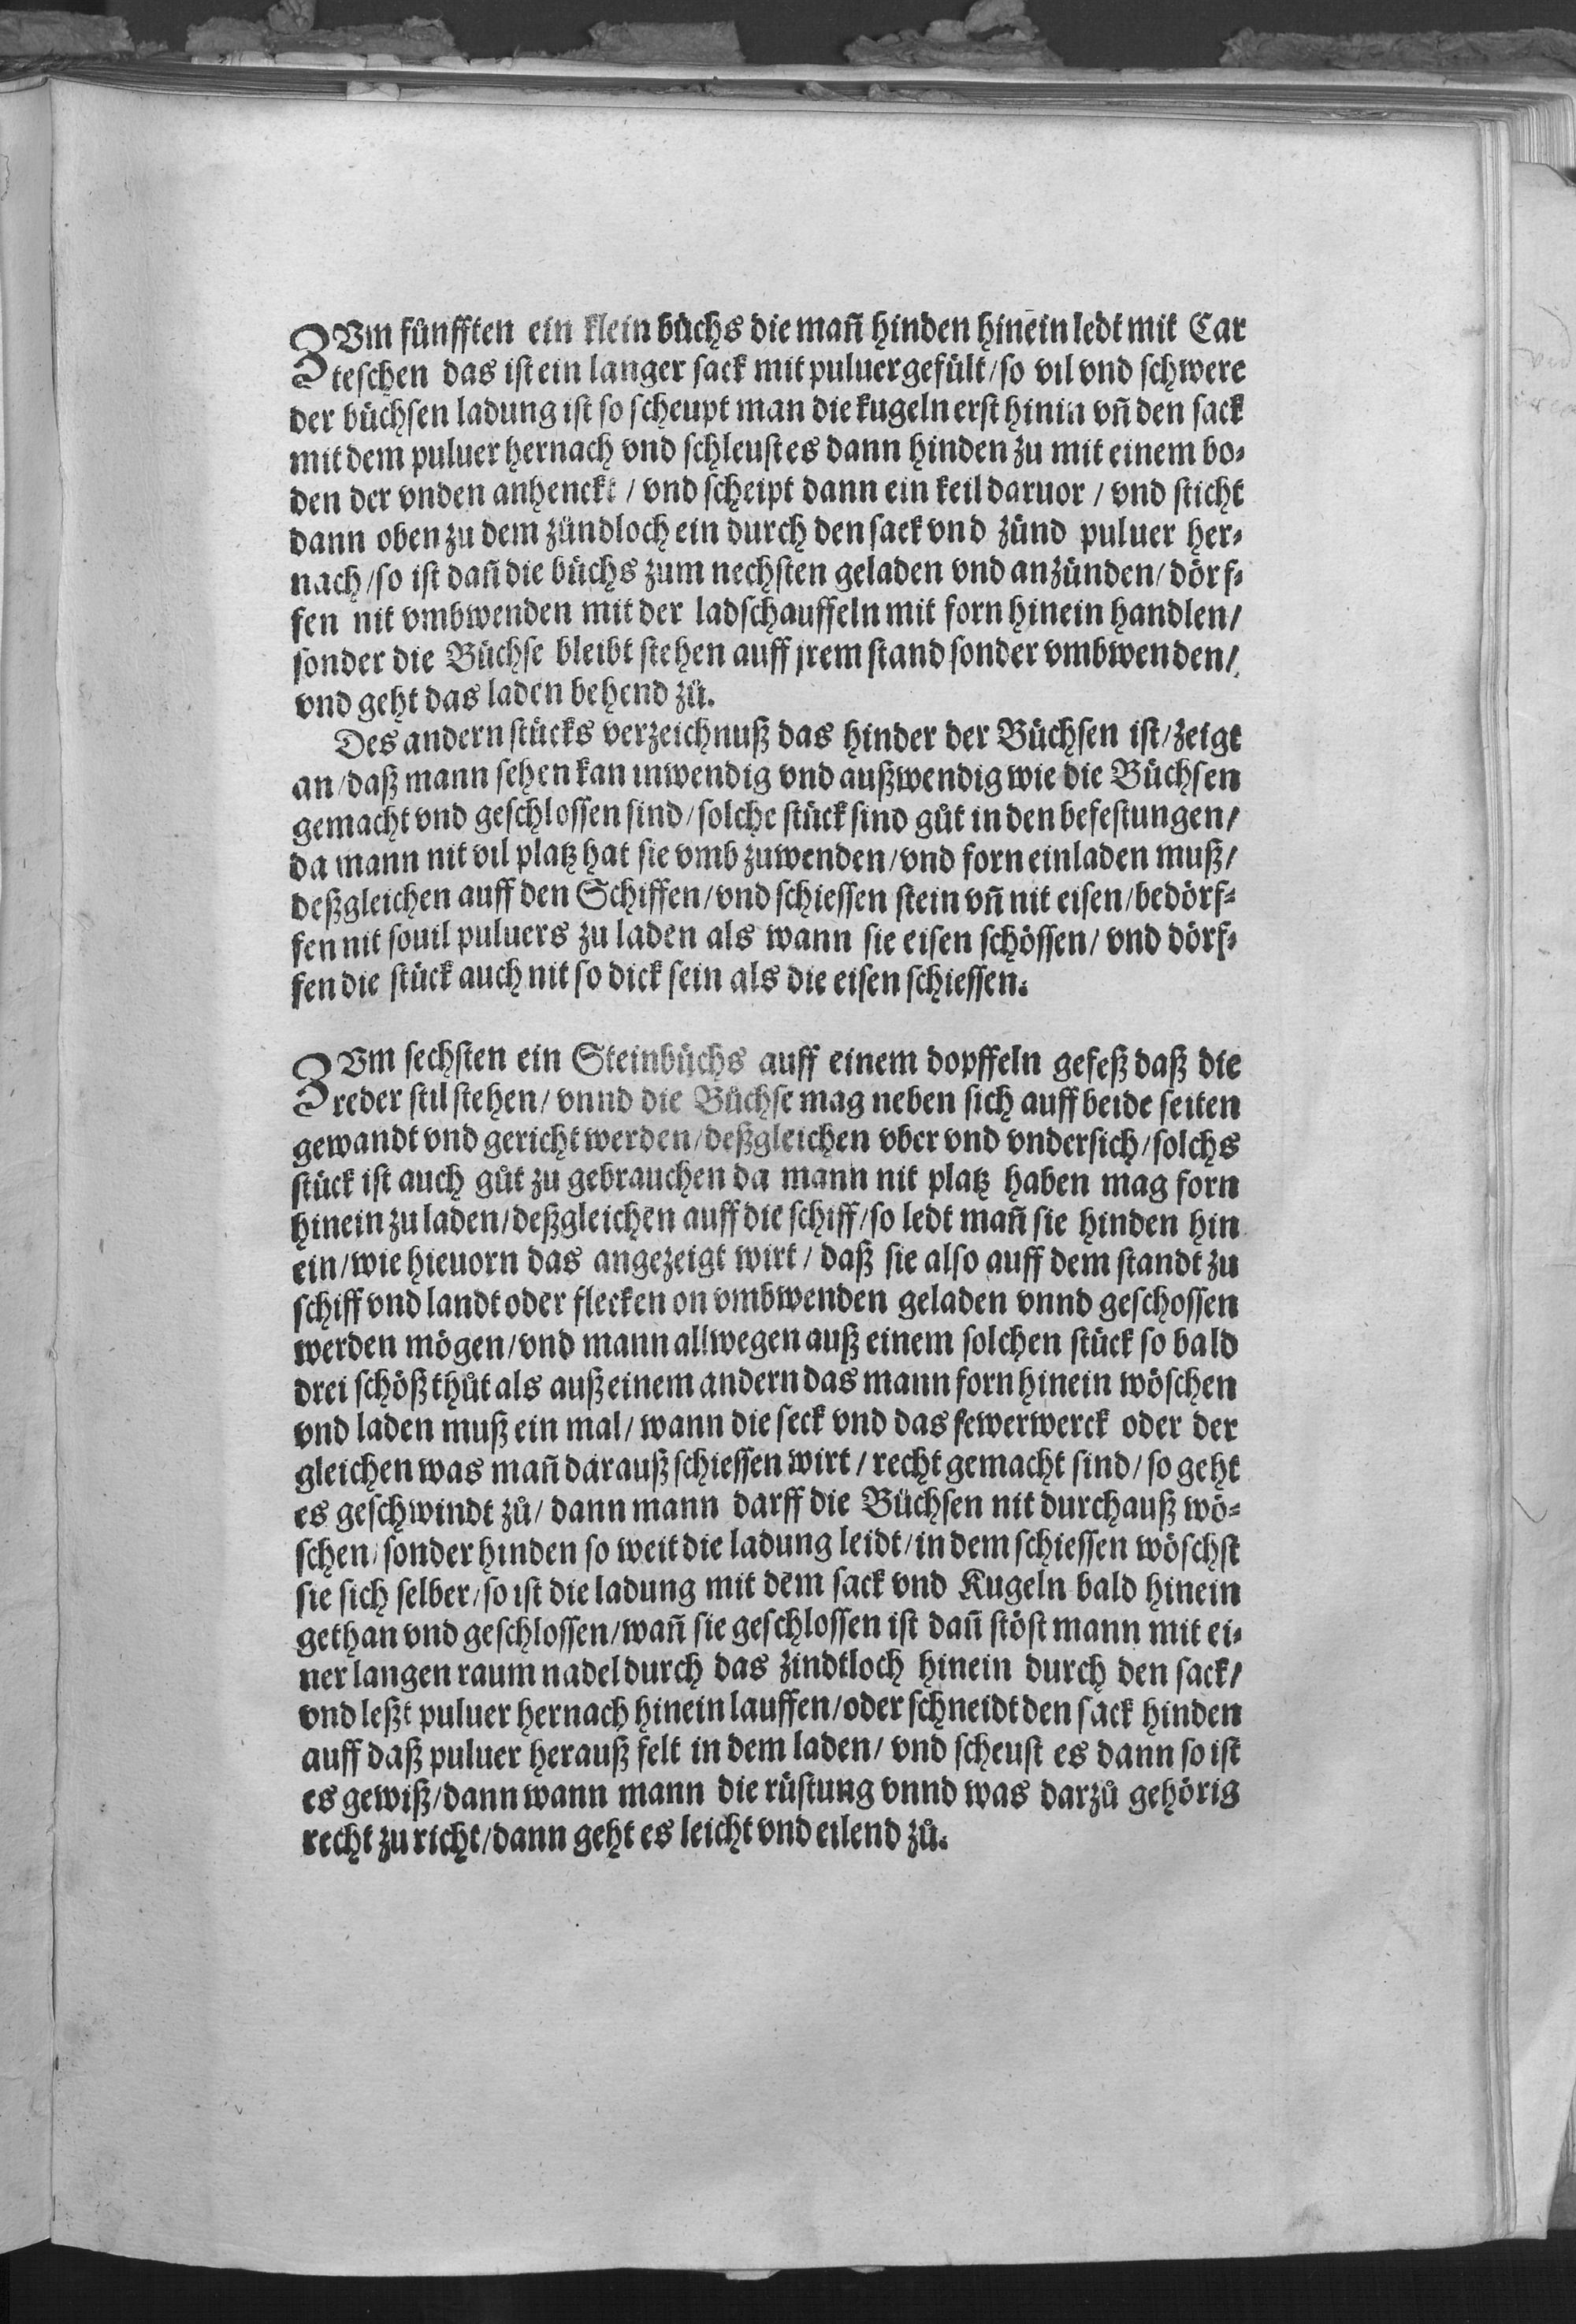 ZVm fünfften ein klein büchs die mañ hinden hinein ledt mit Car
teschen das ist ein langer sack mit puluer gefült / so vil vnd schwere
der büchsen ladung ist so scheupt man die kugeln erst hinin vñ den sack
mit dem puluer hernach vnd schleust es dann hinden zu mit einem bo⸗
den der vnden anhenckt / vnd scheipt dann ein keil daruor / vnd sticht
dann oben zu dem zündloch ein durch den sack vnd zünd puluer her⸗
nach / so ist dañ die büchs zum nechsten geladen vnd anzünden / dörf⸗
fen nit vmbwenden mit der ladschauffeln mit forn hinein handlen /
sonder die Büchse bleibt stehen auff jrem stand sonder vmbwenden /
vnd geht das laden behend zů.
Des andern stücks verzeichnuß das hinder der Büchsen ist / zeigt
an / daß mann sehen kan inwendig vnd außwendig wie die Büchsen
gemacht vnd geschlossen sind / solche stück sind gůt in den befestungen /
da mann nit vil platz hat sie vmb zuwenden / vnd forn einladen muß /
deßgleichen auff den Schiffen / vnd schiessen stein vñ nit eisen / bedörf⸗
fen nit souil puluers zu laden als wann sie eisen schössen / vnd dörf⸗
fen die stück auch nit so dick sein als die eisen schiessen.
ZVm sechsten ein Steinbüchs auff einem dopffeln gefeß daß die
reder stil stehen / vnnd die Büchse mag neben sich auff beide seiten
gewandt vnd gericht werden / deßgleichen vber vnd vndersich / solchs
stück ist auch gůt zu gebrauchen da mann nit platz haben mag forn
hinein zu laden / deßgleichen auff die schiff / so ledt mañ sie hinden hin
ein / wie hieuorn das angezeigt wirt / daß sie also auff dem standt zu
schiff vnd landt oder flecken on vmbwenden geladen vnnd geschossen
werden mögen / vnd mann allwegen auß einem solchen stück so bald
drei schöß thůt als auß einem andern das mann forn hinein wöschen
vnd laden muß ein mal / wann die seck vnd das fewerwerck oder der
gleichen was mañ darauß schiessen wirt / recht gemacht sind / so geht
es geschwindt zů / dann mann darff die Büchsen nit durchauß wö⸗
schen / sonder hinden so weit die ladung leidt / in dem schiessen wöschst
sie sich selber / so ist die ladung mit dem sack vnd Kugeln bald hinein
gethan vnd geschlossen / wañ sie geschlossen ist dañ stöst mann mit ei⸗
ner langen raum nadel durch das zindtloch hinein durch den sack /
vnd leßt puluer hernach hinein lauffen / oder schneidt den sack hinden
auff daß puluer herauß felt in dem laden / vnd scheust es dann so ist
es gewiß / dann wann mann die rüstung vnnd was darzů gehörig
recht zu richt / dann geht es leicht vnd eilend zů.